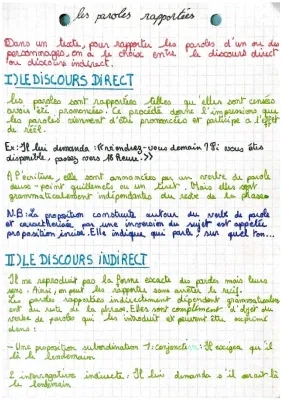 les paroles rapportées
Dans un texte, pour rapporter les paroles d'un ou des
personnages, on a le choix entre le discours direct
ou discours indirect.
I) LE DISCOURS DIRECT
les paroles sont rapportées telles qu'elles sont censées
avoir été prononcées. Ce procédé donne l'impression que
les paroles viennent d'être prononcées et participe a l'effet
de réel.
Ex: Il lui demanda : «viendrez-vous demain ? Si vous êtes
disponible, passez vers 16 heure.»
A l'écriture, elle sont annoncées par un verbe de parole
deux-point guillemets ou un tiret. Mais elles sont
grammaticalement indépendantes du reste de la phrase
N.B: La proposition construite autour du verbe de parole
et caractérisée par une inversion du sujet est appelée
proposition incise. Elle indique qui parle, sur quel ton...
II) LE DISCOURS INDIRECT
Il ne reproduit pas la forme exacte des paroles mais leurs
sens. Ainsi, on peut les rapporter sans arrêter le récit.
Les paroles rapportées indirectement dépendent grammaticalement
du reste de la phrase. Elles sont complément d'objet du
verbe de paroles qui les introduit et peuvent être exprimé
dans :
- Une proposition subordination 1: conjonction: Il exigea qu'il
là le lendemain
L interrogative indirecte: Il lui demanda s'il serait là
le lendemain